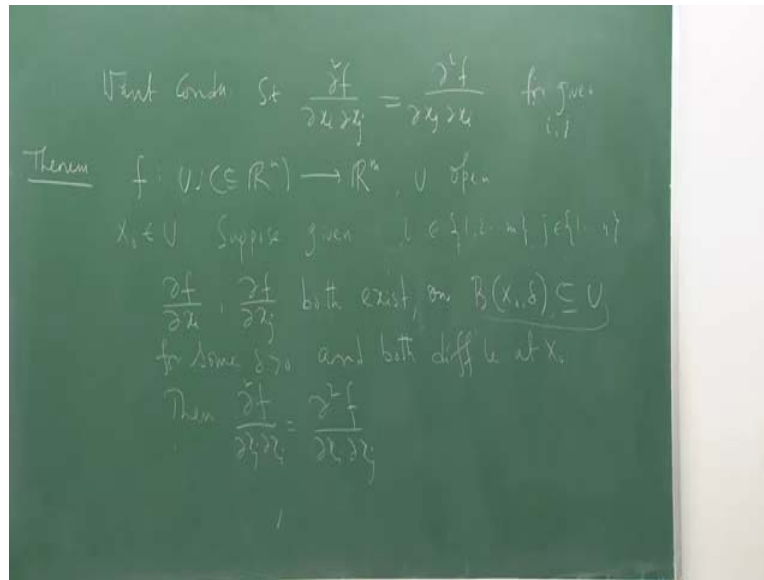 Want Condn St ∂²f/∂xi ∂xj = ∂²f/∂xj ∂xi for given i,j
Theorem f : U (⊆ ℝⁿ) → ℝᵐ, U open
X₀ ∈ U Suppose given i ∈ {1,2..m} j ∈ {1..n}
∂f/∂xi , ∂f/∂xj both exist, on B(X₀, δ) ⊆ U
for some δ>0 and both diff'ble at X₀
Then ∂²f/∂xj ∂xi = ∂²f/∂xi ∂xj